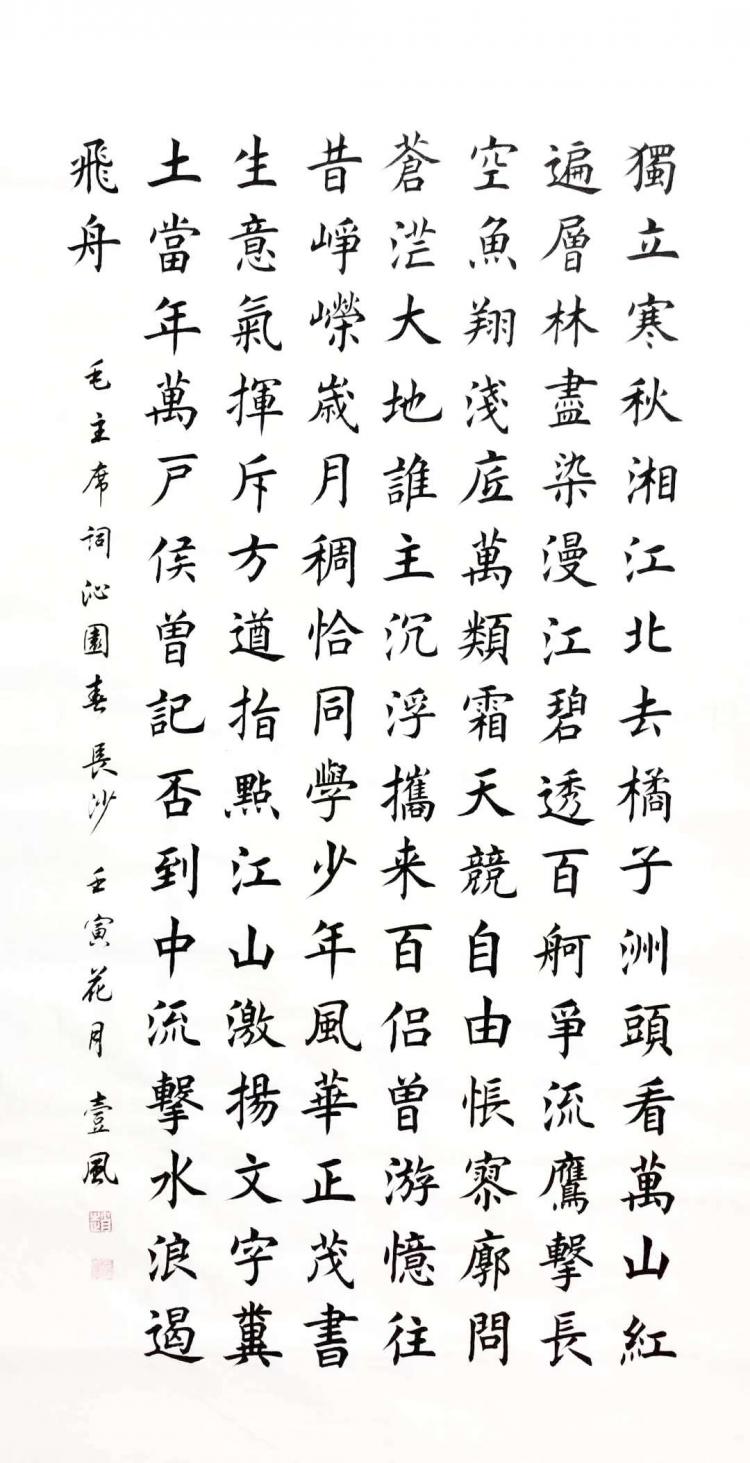 獨立寒秋湘江北去橘子洲頭看萬山紅
遍層林盡染漫江碧透百舸爭流鷹擊長
空魚翔淺底萬類霜天競自由悵寥廓問
蒼茫大地誰主沉浮攜来百侶曾游憶往
昔崢嶸歲月稠恰同學少年風華正茂書
生意氣揮斥方遒指點江山激揚文字糞
土當年萬戶侯曾記否到中流擊水浪遏
飛舟
毛主席詞沁園春長沙 壬寅花月 壹風